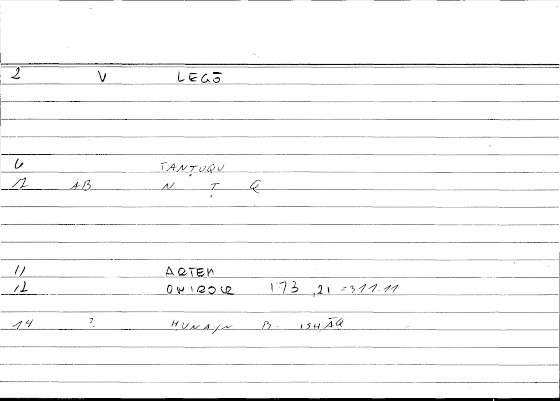 2 V LEGŌ
6 TANṬUQU
12 AB N Ṭ Q
11
12 173 ,21 =311.11
14 ? HUNAYN B. ISHĀQ